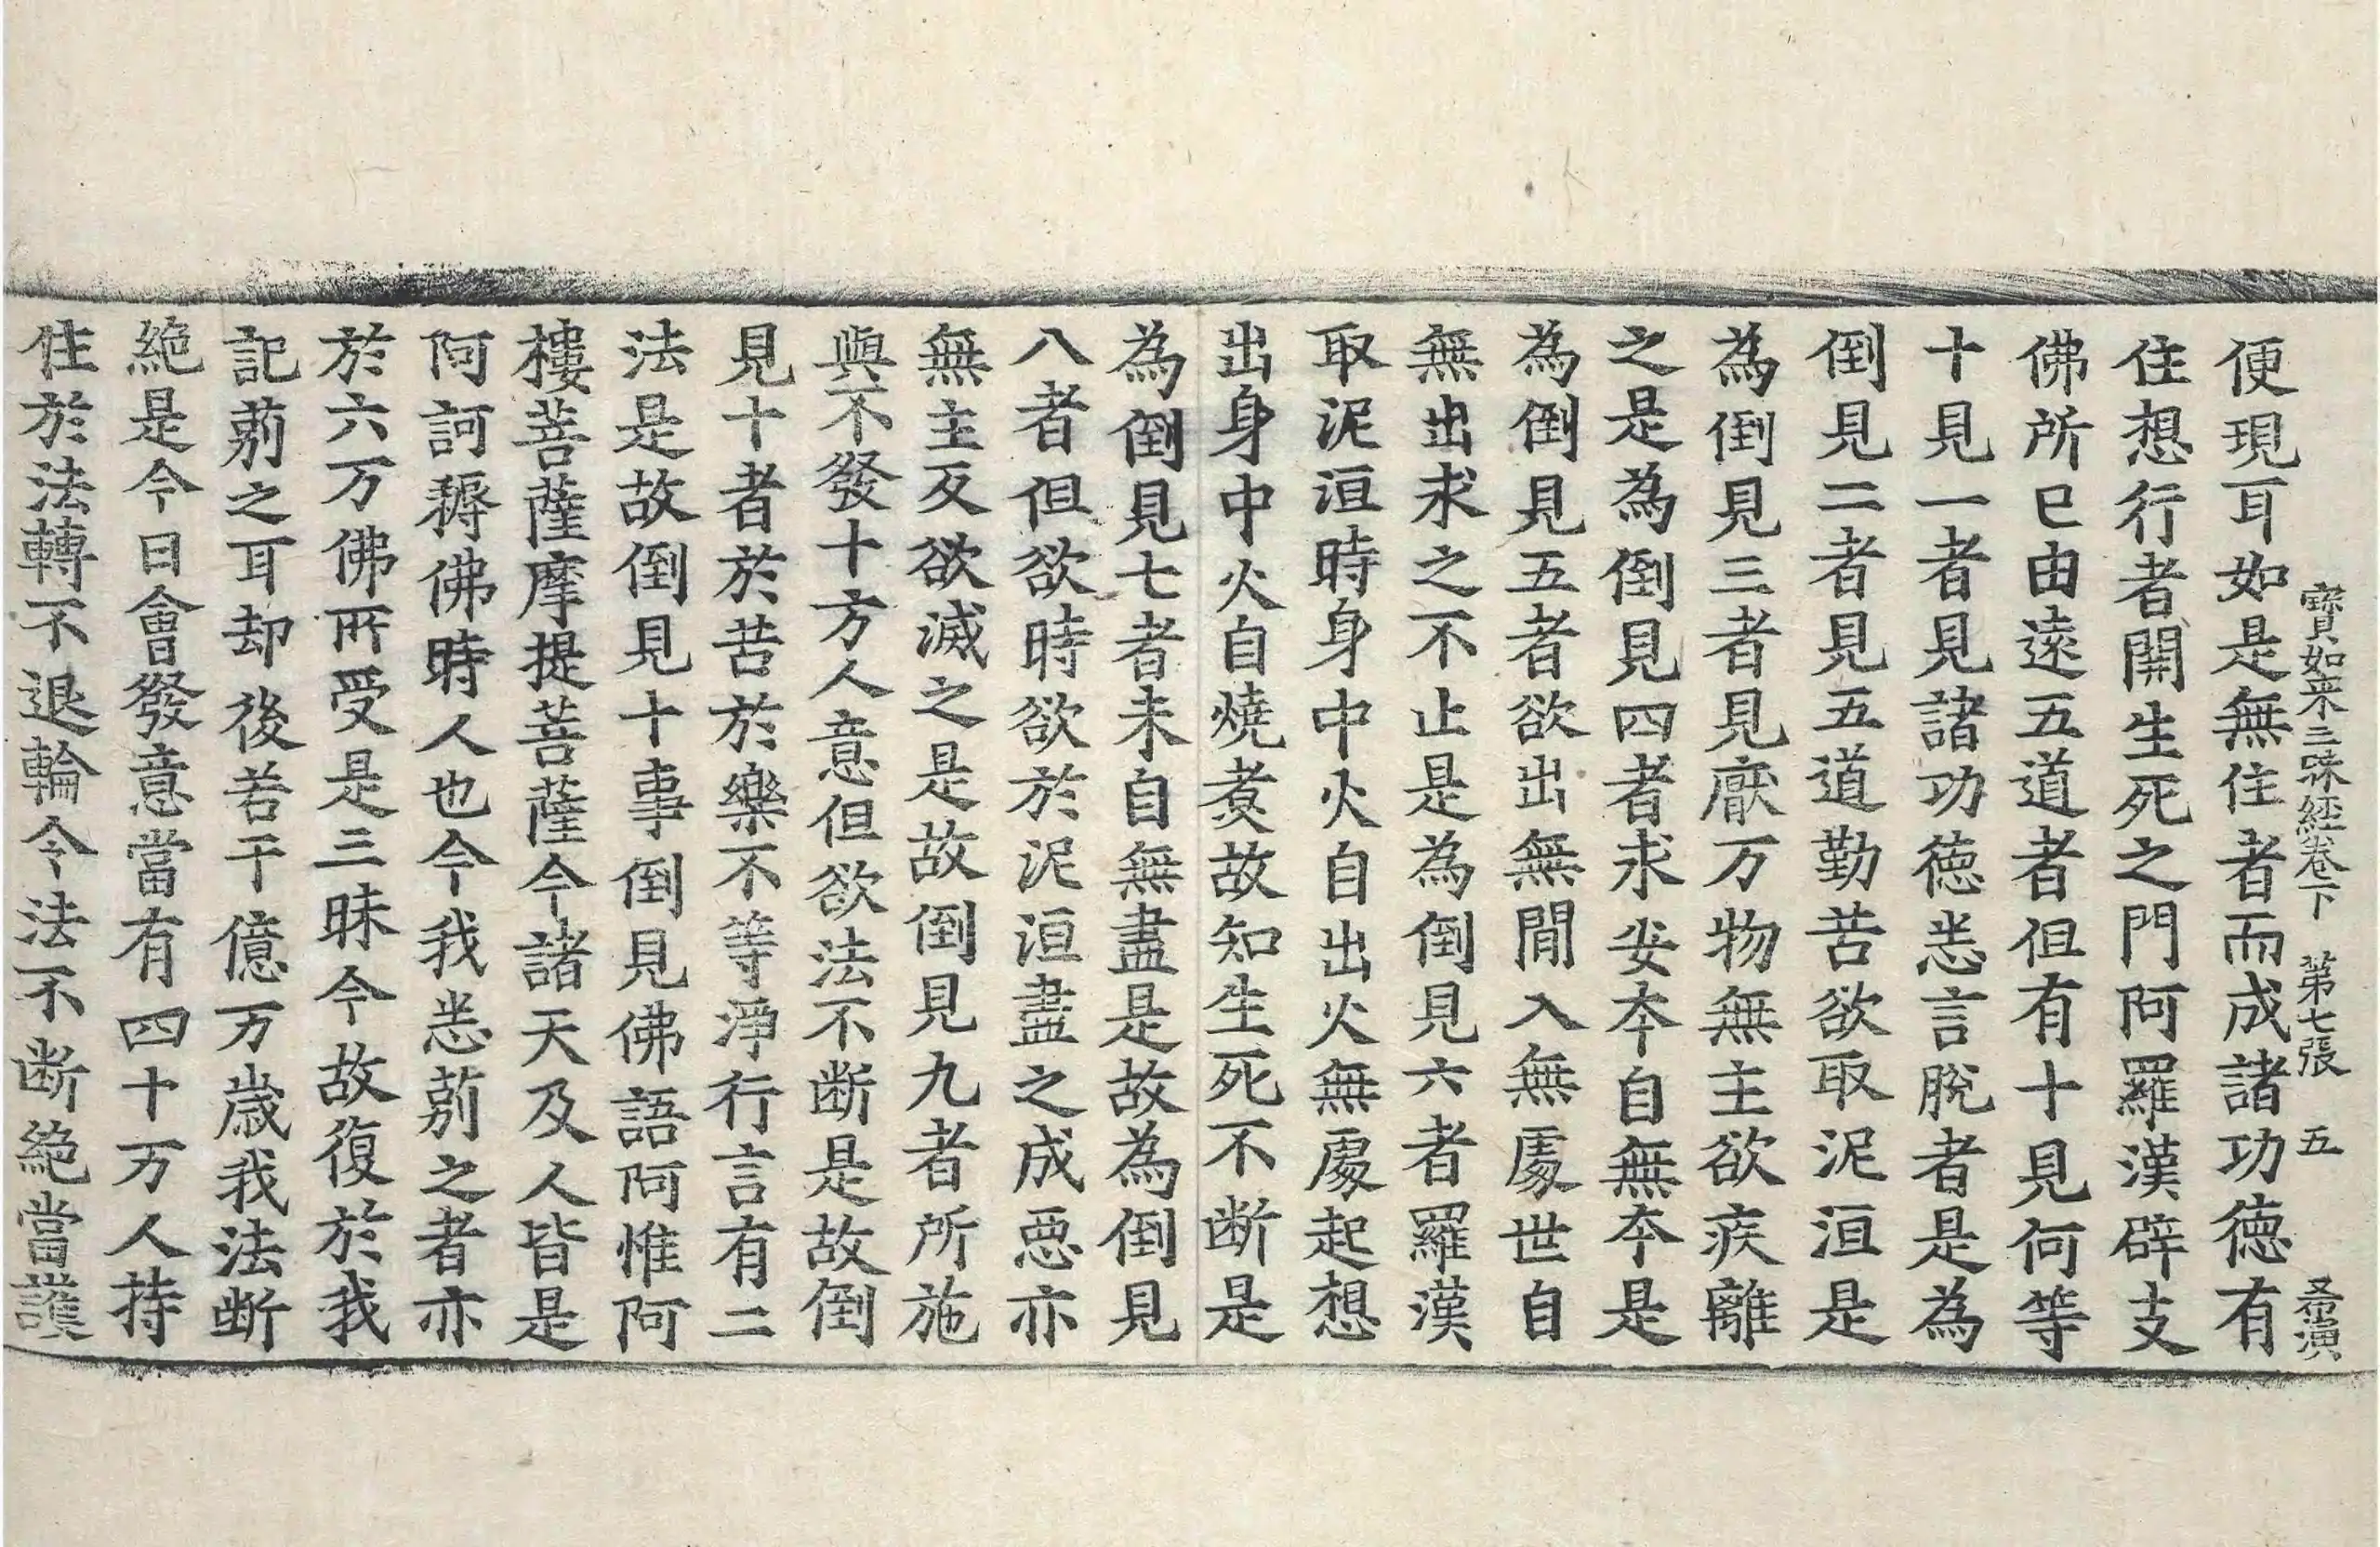 寶如来三昧經卷下　第七張　五　希演
便現耳如是無住者而成諸功徳有
住想行者開生死之門阿羅漢辟支
佛所已由遠五道者但有十見何等
十見一者見諸功徳悉言脫者是為
倒見二者見五道勤苦欲取泥洹是
為倒見三者見厭万物無主欲疾離
之是為倒見四者求安夲自無夲是
為倒見五者欲出無閒入無處世自
無出求之不止是為倒見六者羅漢
取泥洹時身中火自出火無處起想
出身中火自燒煑故知生死不断是
為倒見七者未自無盡是故為倒見
八者但欲時欲於泥洹盡之成惡亦
無主反欲滅之是故倒見九者所施
與不發十方人意但欲法不断是故倒
見十者於苦於樂不等淨行言有二
法是故倒見十事倒見佛語阿惟阿
樓菩薩摩提菩薩今諸天及人皆是
阿訶耨佛時人也今我悉莂之者亦
於六万佛所受是三昧今故復於我
記莂之耳却後若干億万歲我法断
絶是今日會發意當有四十万人持
住於法轉不退輪令法不断絶當護